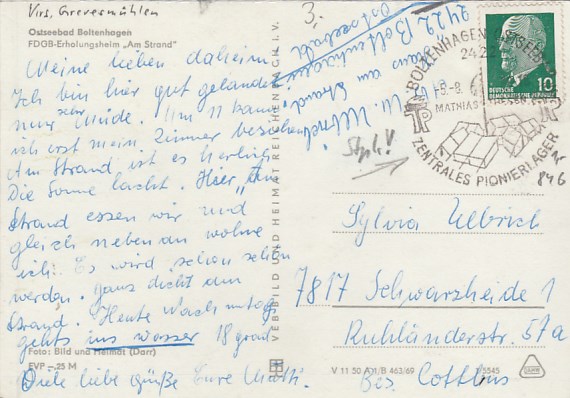 Virs, Grevesmühlen
3.
Ostseebad Boltenhagen
FDGB-Erholungsheim „Am Strand“
Meine lieben daheim
Ich bin hier gut gelandet
nur sehr müde. Um 11 kann
ich erst mein Zimmer beziehen
Am Strand ist es herrlich
Die Sonne lacht. Hier „Am
Strand essen wir und
gleich nebenan wohne
ich. Es wird schon schön
werden. ganz dicht am
Strand. Heute Nachmittag
gehts ins Wasser 18 grad
Foto: Bild und Heimat (Darr)
EVP –.25 M
Viele liebe Grüße Eure Mutti
VEB BILD UND HEIMAT REICHENBACH I. V.
2422 Boltenhagen
Ostseebad
Haus am Strand
M. Ulbrich
DEUTSCHE
DEMOKRATISCHE REPUBLIK
10
BOLTENHAGEN OSTSEEBAD
24.2
-8.
MATHIAS THESEN
TP
ZENTRALES PIONIERLAGER
846
Sylvia Ulbrich
7817 Schwarzheide 1
Ruhländerstr. 57a
Bez. Cottbus
V 11 50 A 1/B 463/69
5545